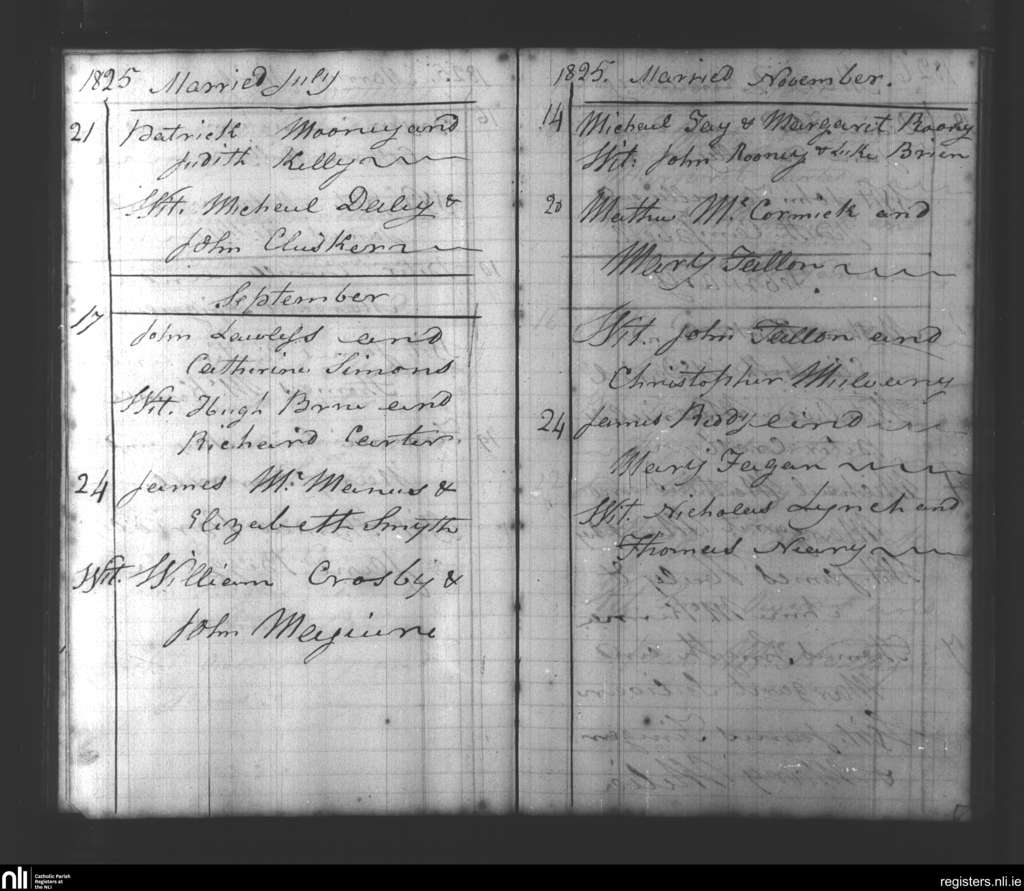 1825 Married July
21 Patrick Mooney and
Judith Kelly
Wit. Micheal Daley &
John Cluskern
September
17
John Lawless and
Catherine Simons
Wit. Hugh and
Richard Carter.
24 James Mc. Manus &
Elizabeth Smyth
Wit. William Crosby &
John
1825. Married November.
14 Micheal Fay & Margaret Rooney
Wit. John Rooney & Luke Brien
20 Mathew Mc. Cormick and
Mary Fallon
Wit. John Fallon and
Christopher
24 James Reddy and
Mary Fagan
Wit. Nicholas Lynch and
Thomas Neary
nli Catholic Parish
Registers at
the NLI
registers.nli.ie